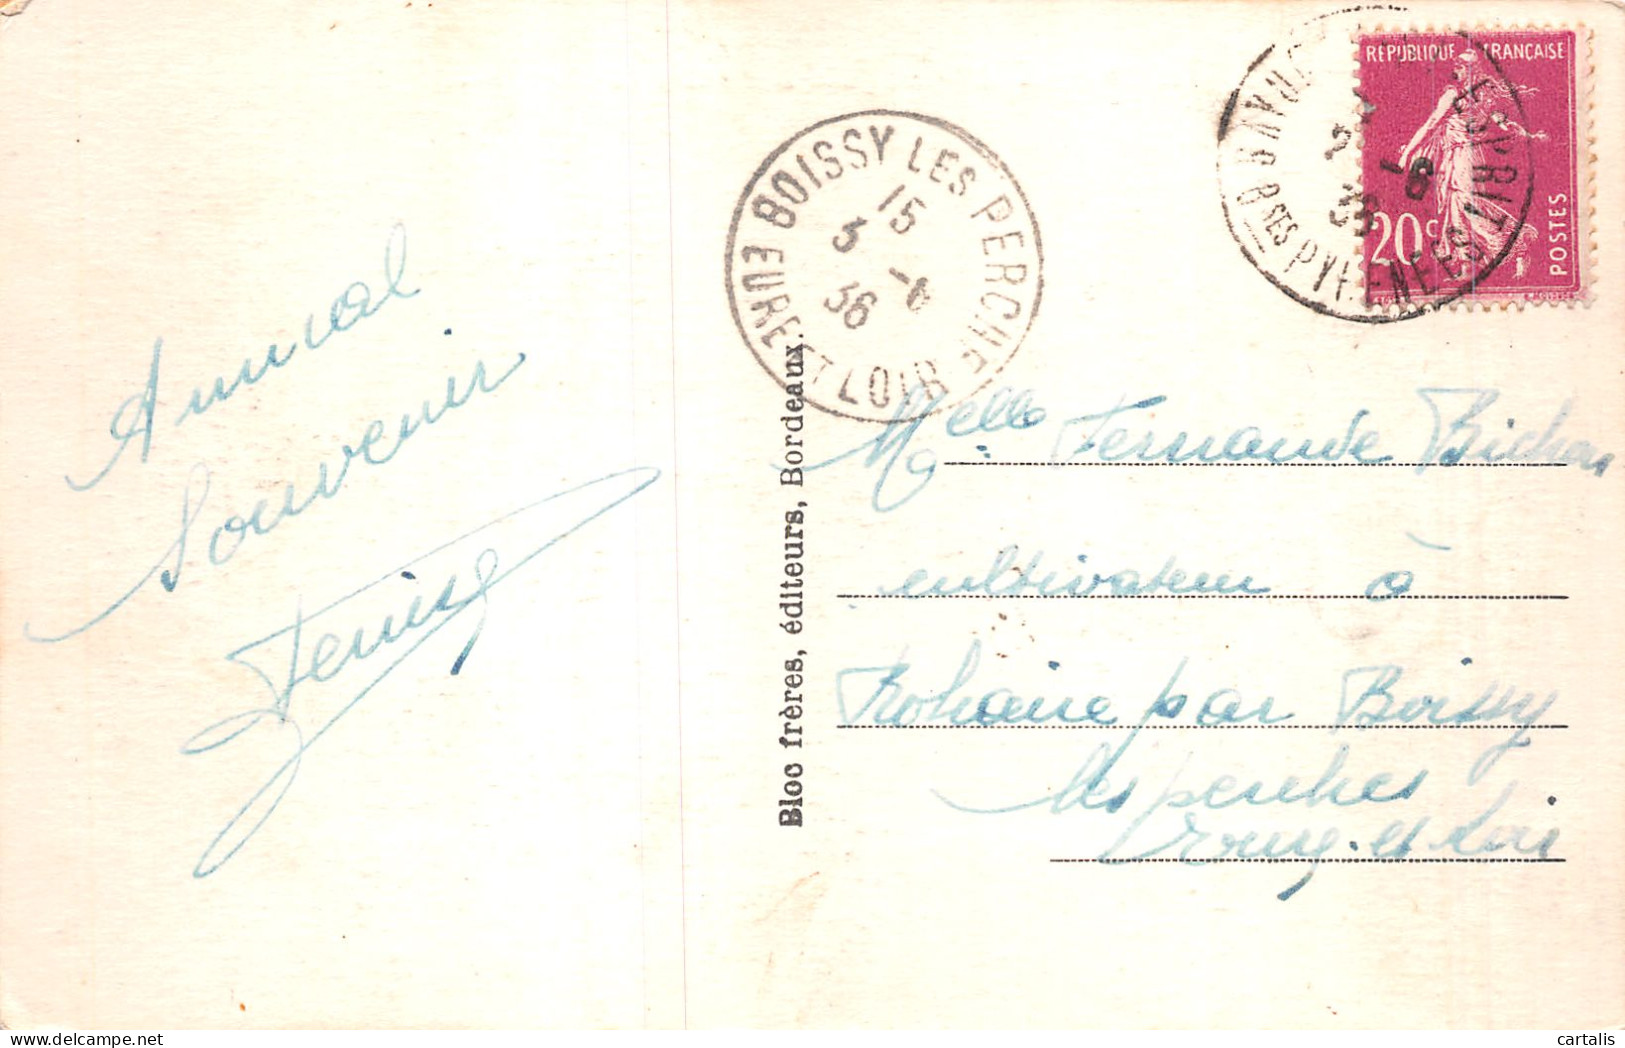 Amical
Souvenir
Denise
BOISSY LES PERCHE
15
3 -6
36
EURE ET LOIR
Bloc frères, éditeurs, Bordeaux.
RÉPUBLIQUE FRANÇAISE
20c
POSTES
ESPRIT
2 -6
36
Bses PYRENEES
Melle Fernande Bichon
cultivateur à
Rohaire par Boissy
les perches
Eure-et-Loir
cartalis